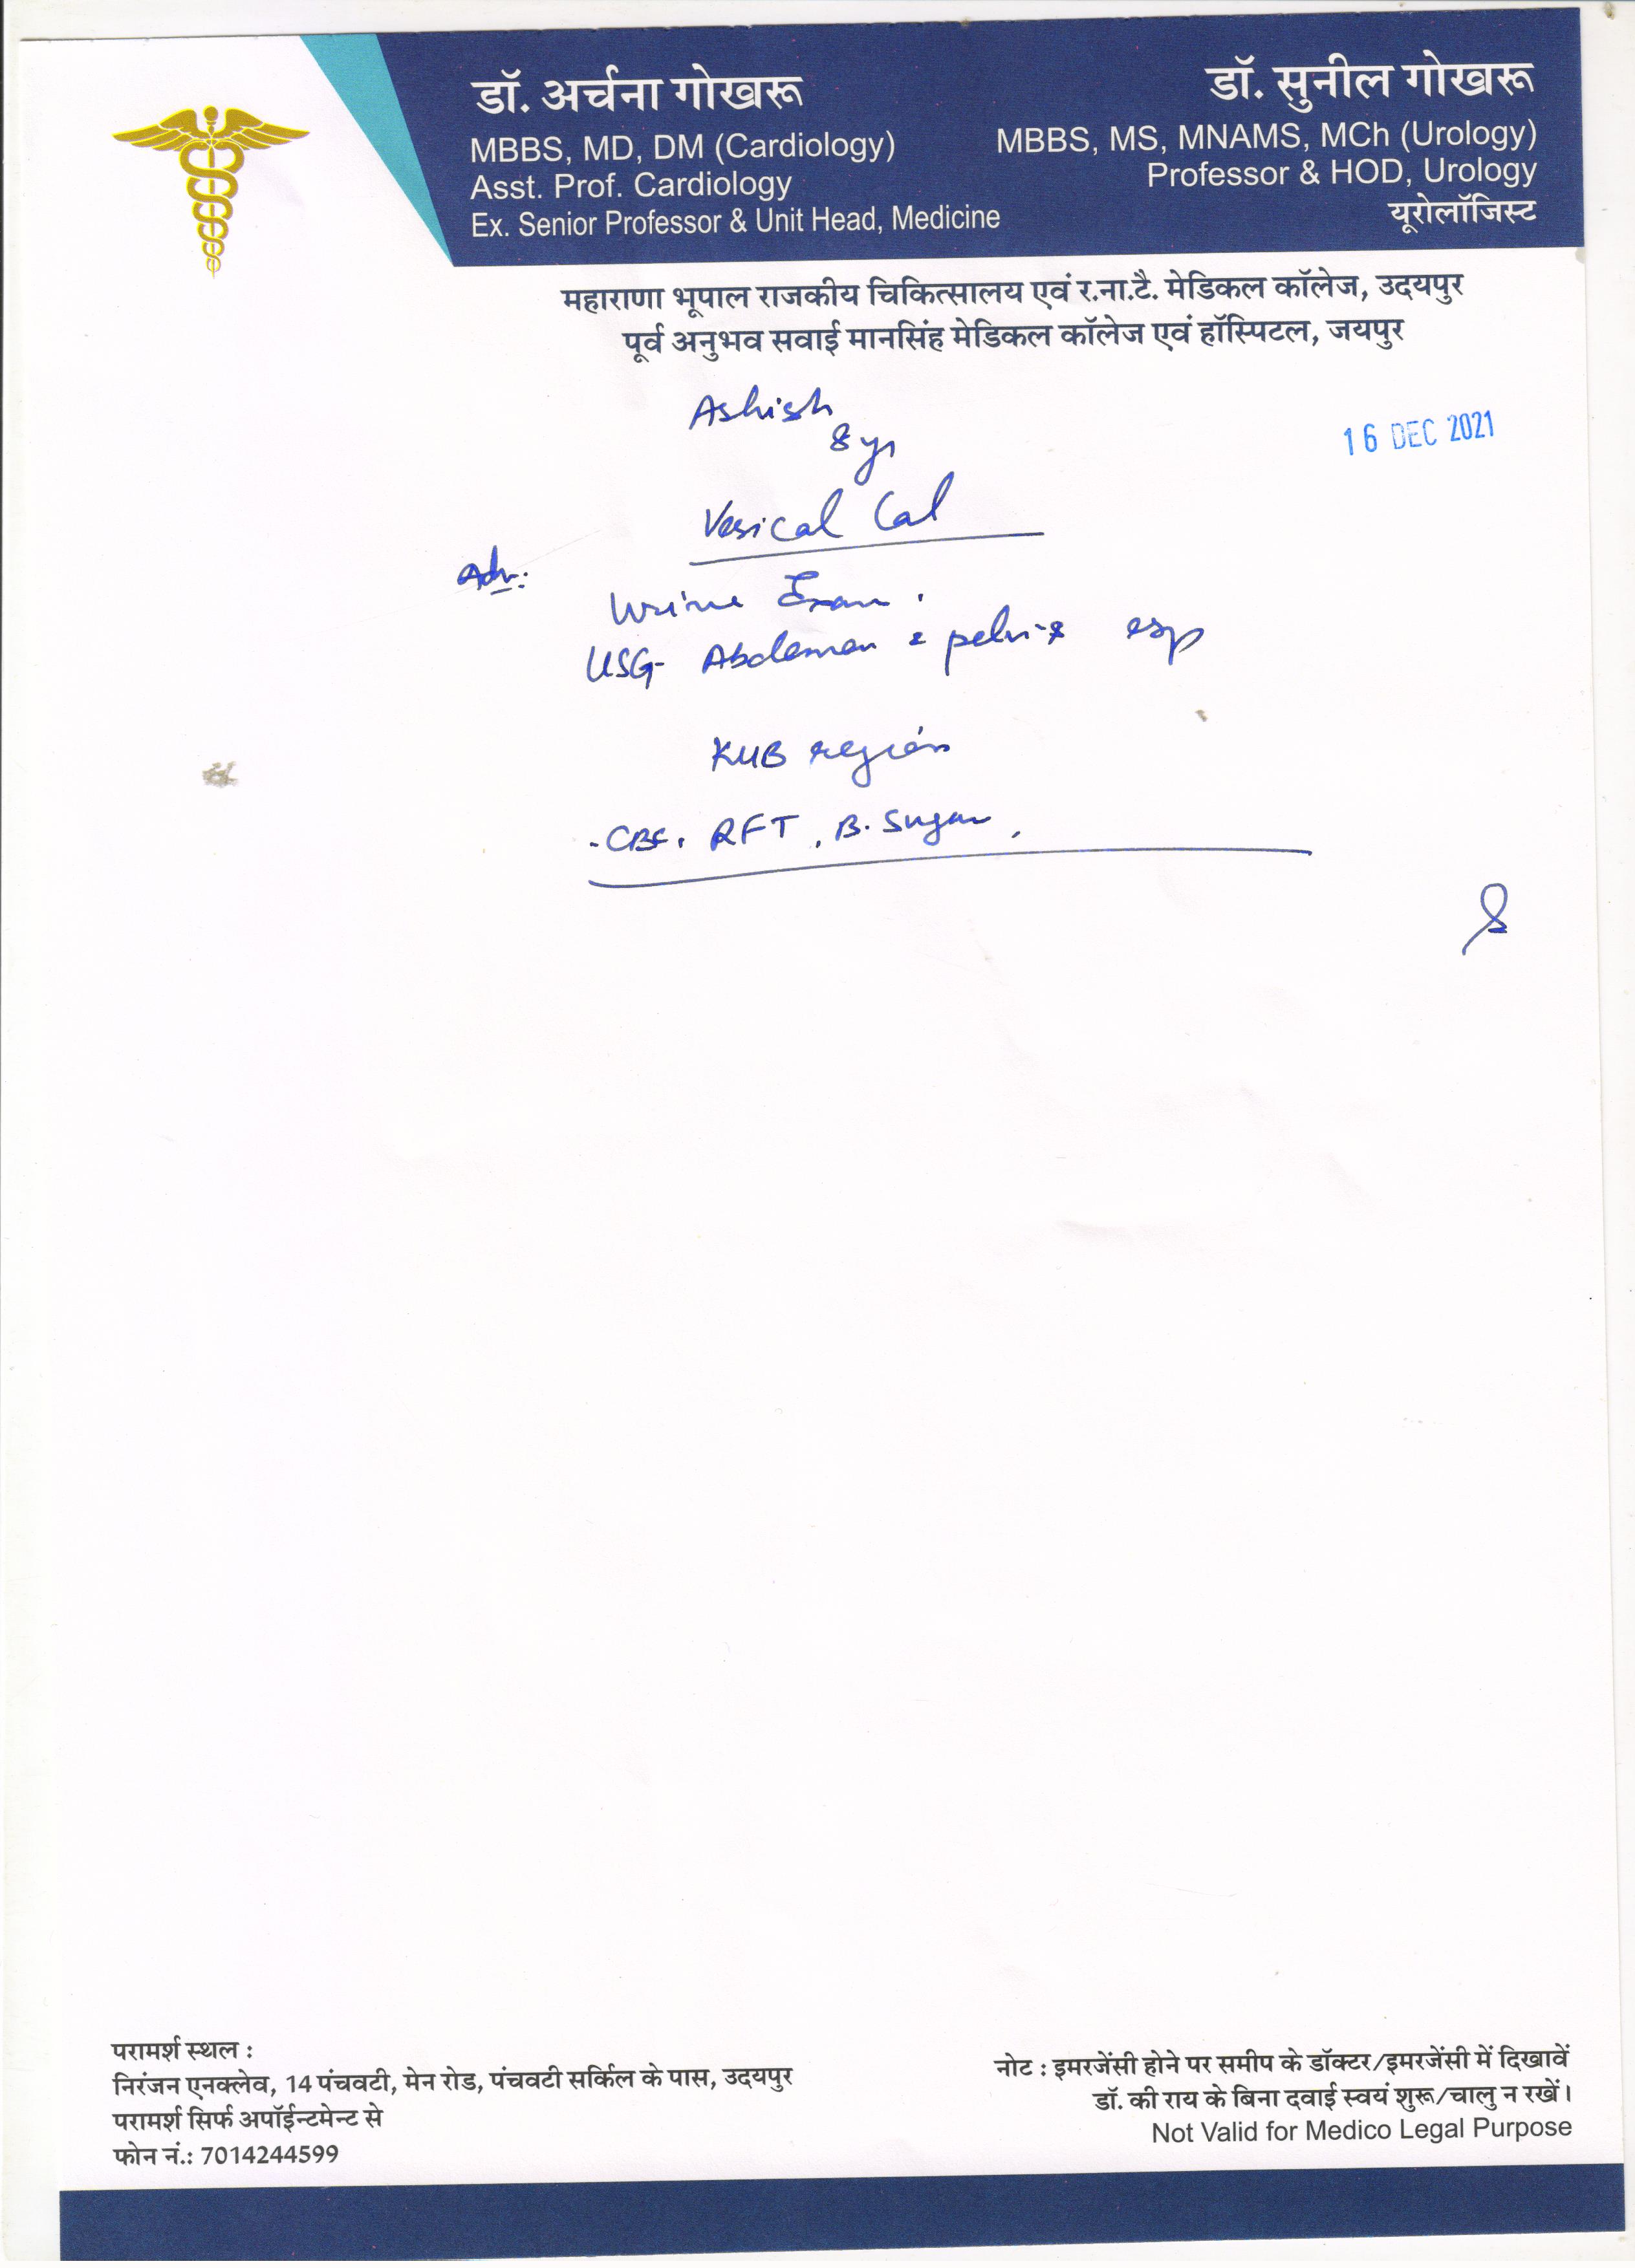 डॉ. अर्चना गोखरू
MBBS, MD, DM (Cardiology)
Asst. Prof. Cardiology
Ex. Senior Professor & Unit Head, Medicine
डॉ. सुनील गोखरू
MBBS, MS, MNAMS, MCh (Urology)
Professor & HOD, Urology
यूरोलॉजिस्ट
महाराणा भूपाल राजकीय चिकित्सालय एवं र.ना.टै. मेडिकल कॉलेज, उदयपुर
पूर्व अनुभव सवाई मानसिंह मेडिकल कॉलेज एवं हॉस्पिटल, जयपुर
16 DEC 2021
Ashish
8 yr
Vesical Cal
Adv:
Urine Exam.
USG- Abdomen & pelvis esp
KUB region
-CBC, RFT, B. Sugar,
परामर्श स्थल :
निरंजन एनक्लेव, 14 पंचवटी, मेन रोड, पंचवटी सर्किल के पास, उदयपुर
परामर्श सिर्फ अपॉईन्टमेन्ट से
फोन नं.: 7014244599
नोट : इमरजेंसी होने पर समीप के डॉक्टर/इमरजेंसी में दिखावें
डॉ. की राय के बिना दवाई स्वयं शुरू/चालु न रखें।
Not Valid for Medico Legal Purpose